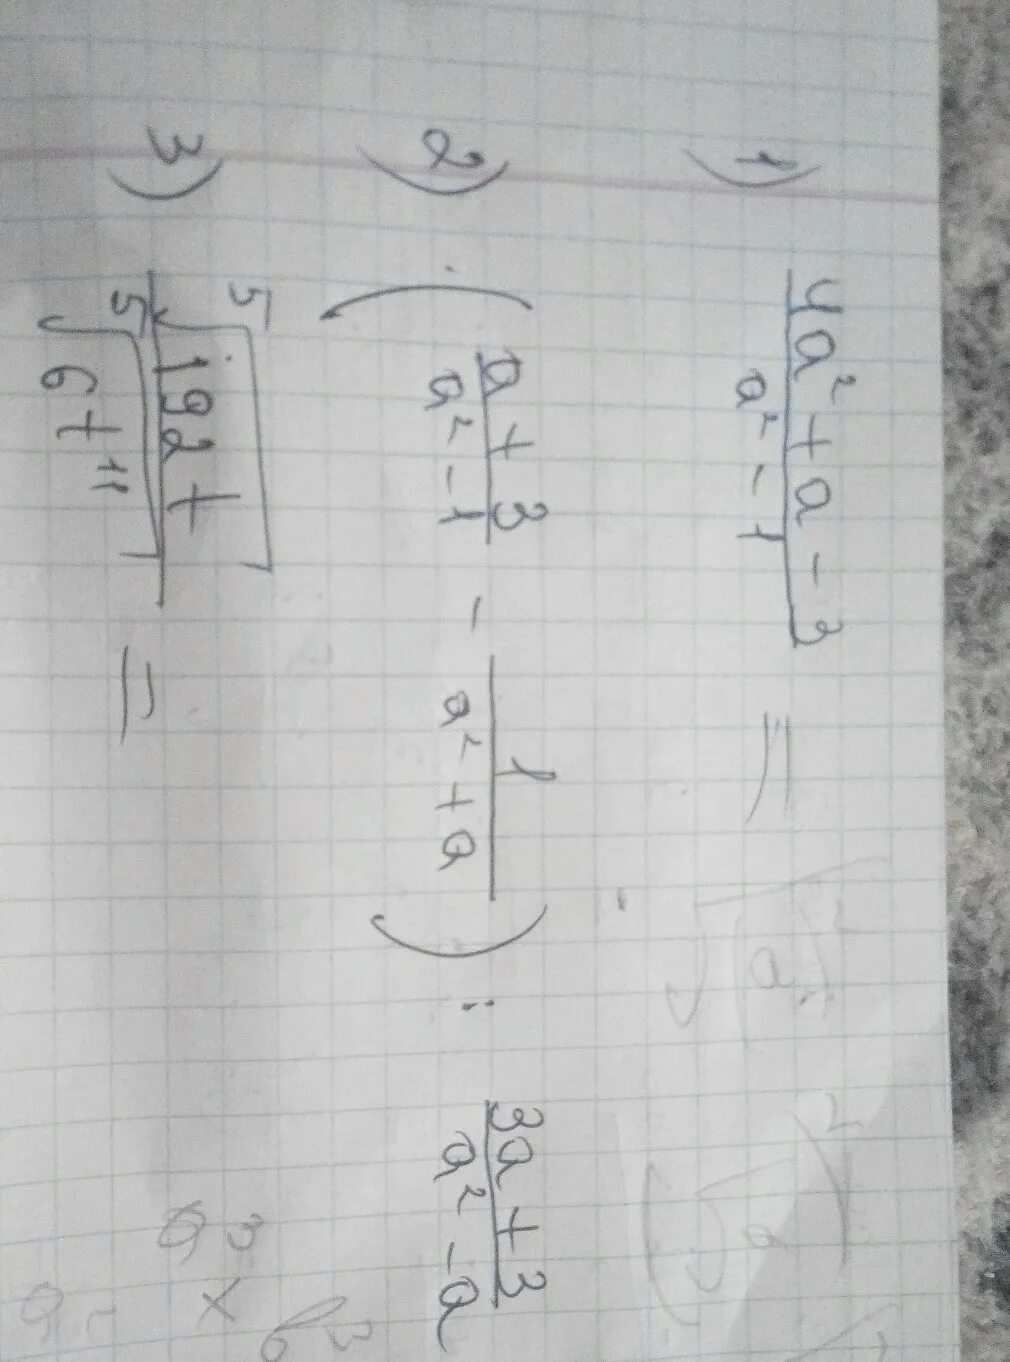 1) (4a² + a - 3)/(a² - 1) =
2) ((a + 3)/(a² - 1) - 1/(a² + a)) : (3a + 3)/(a² - a)
3) ⁵√(192t)/⁵√(6t¹¹) =